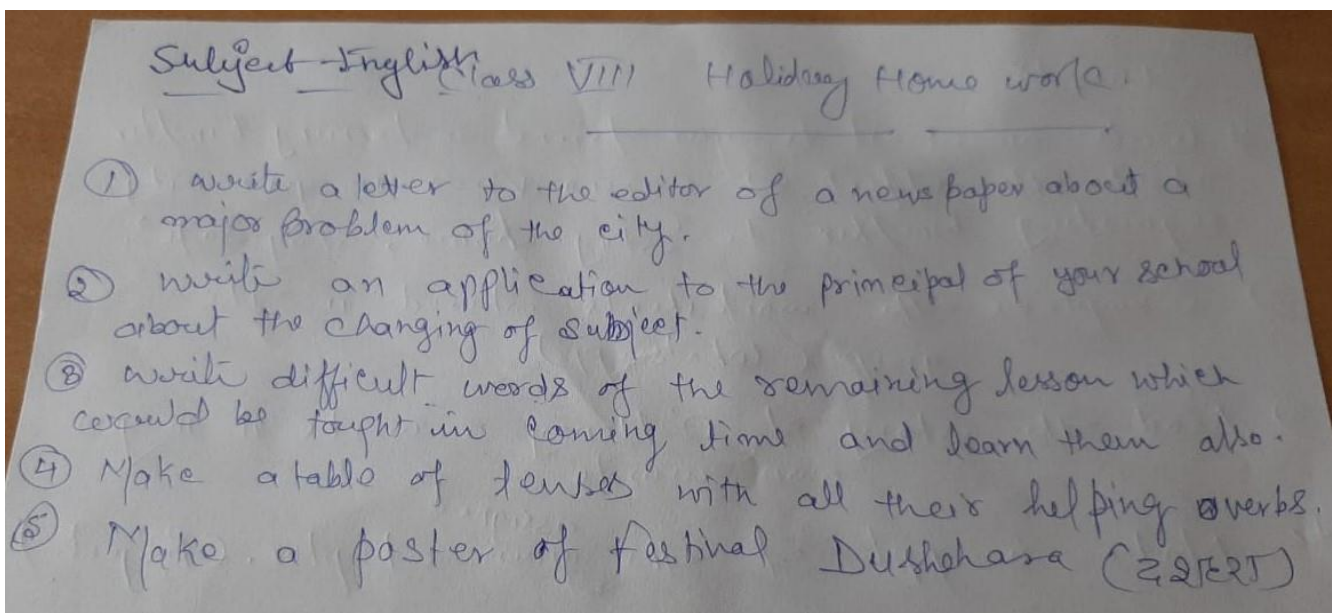 Subject - English Class VIII Holiday Home work.
① write a letter to the editor of a news paper about a
major problem of the city.
② write an application to the principal of your school
about the changing of subject.
③ write difficult words of the remaining lesson which
could be tought in coming time and learn them also.
④ Make a table of tenses with all their helping verbs.
⑤ Make a poster of festival Dushehara (दशहरा)